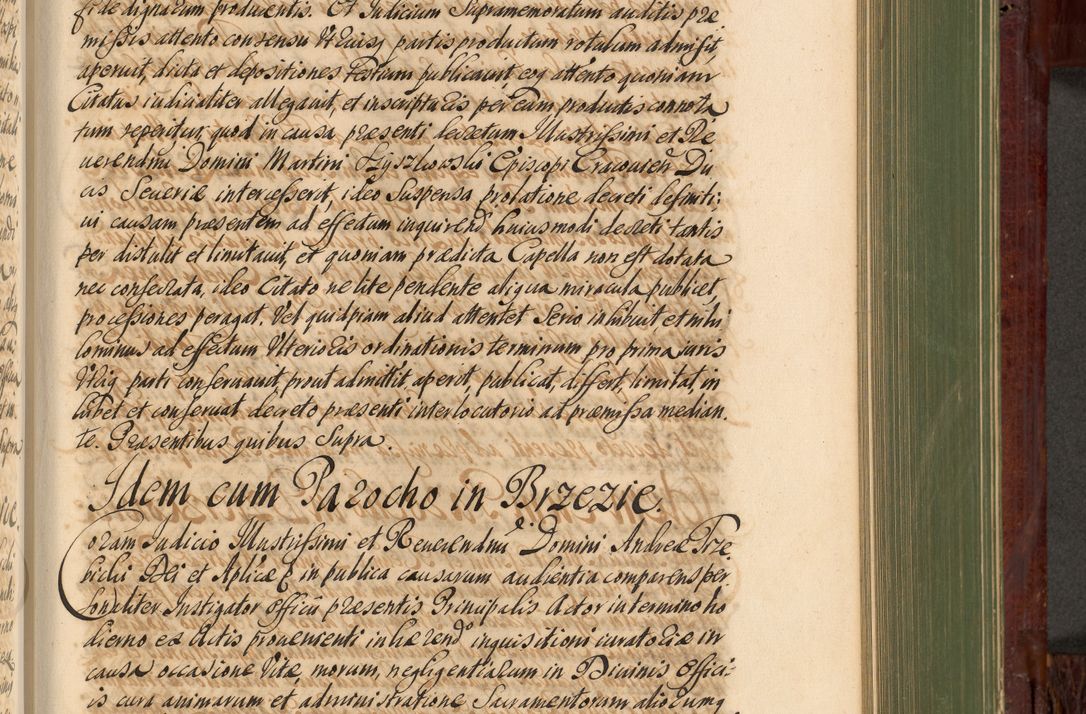 fide dignarum producentis. Et Iudicium Supramemoratum auditis præ
missis attento consensu Utriusq partis productum rotulum admisit,
aperuit, dicta et depositiones Testium publicauit, eoq attento quoniam
Citatus iudicialiter allegauit, et inscripturis per eum productis connota
tum reperitur, quod in causa præsenti decretum Illustrissimi et Re
uerendmi Domini Martini Szyszkowski Episcopi Cracouien Du
cis Seueriæ intercesserit, ideo Suspensa prolatione decreti definiti:
ui causam præsentem ad effectum inquirend huiusmodi decreti tantis
per distulit et limitauit, et quoniam prædicta Capella non est dotata
nec consecrata, ideo Citato ne lite pendente aliqua miracula publicet,
processiones peragat. Vel quidpiam aliud attentet Serio inhibuit et nihi
lominus ad effectum Ulterioris ordinationis terminum pro prima iuris
Utriq parti conseruauit prout admittit, aperit, publicat, differt, limitat, in
hibet et conseruat decreto præsenti interlocutorio ad præmissa median
te. Præsentibus quibus Supra.
Idem cum Parocho in Brzezie.
Coram Iudicio Illustrissimi et Reuerendmi Domini Andreæ Trze
bicki Dei et Aplicæ in publica causarum audientia comparens per
sonaliter Instigator Officii præsentis Principalis Actor in termino ho
dierno ex Actis proueniendi inhærend inquisitioni iuratoriæ in
causa occasione Vitæ, morum, negligentiarum in Diuinis Offici:
is cura animarum et administratione Sacramentorum aliorumq